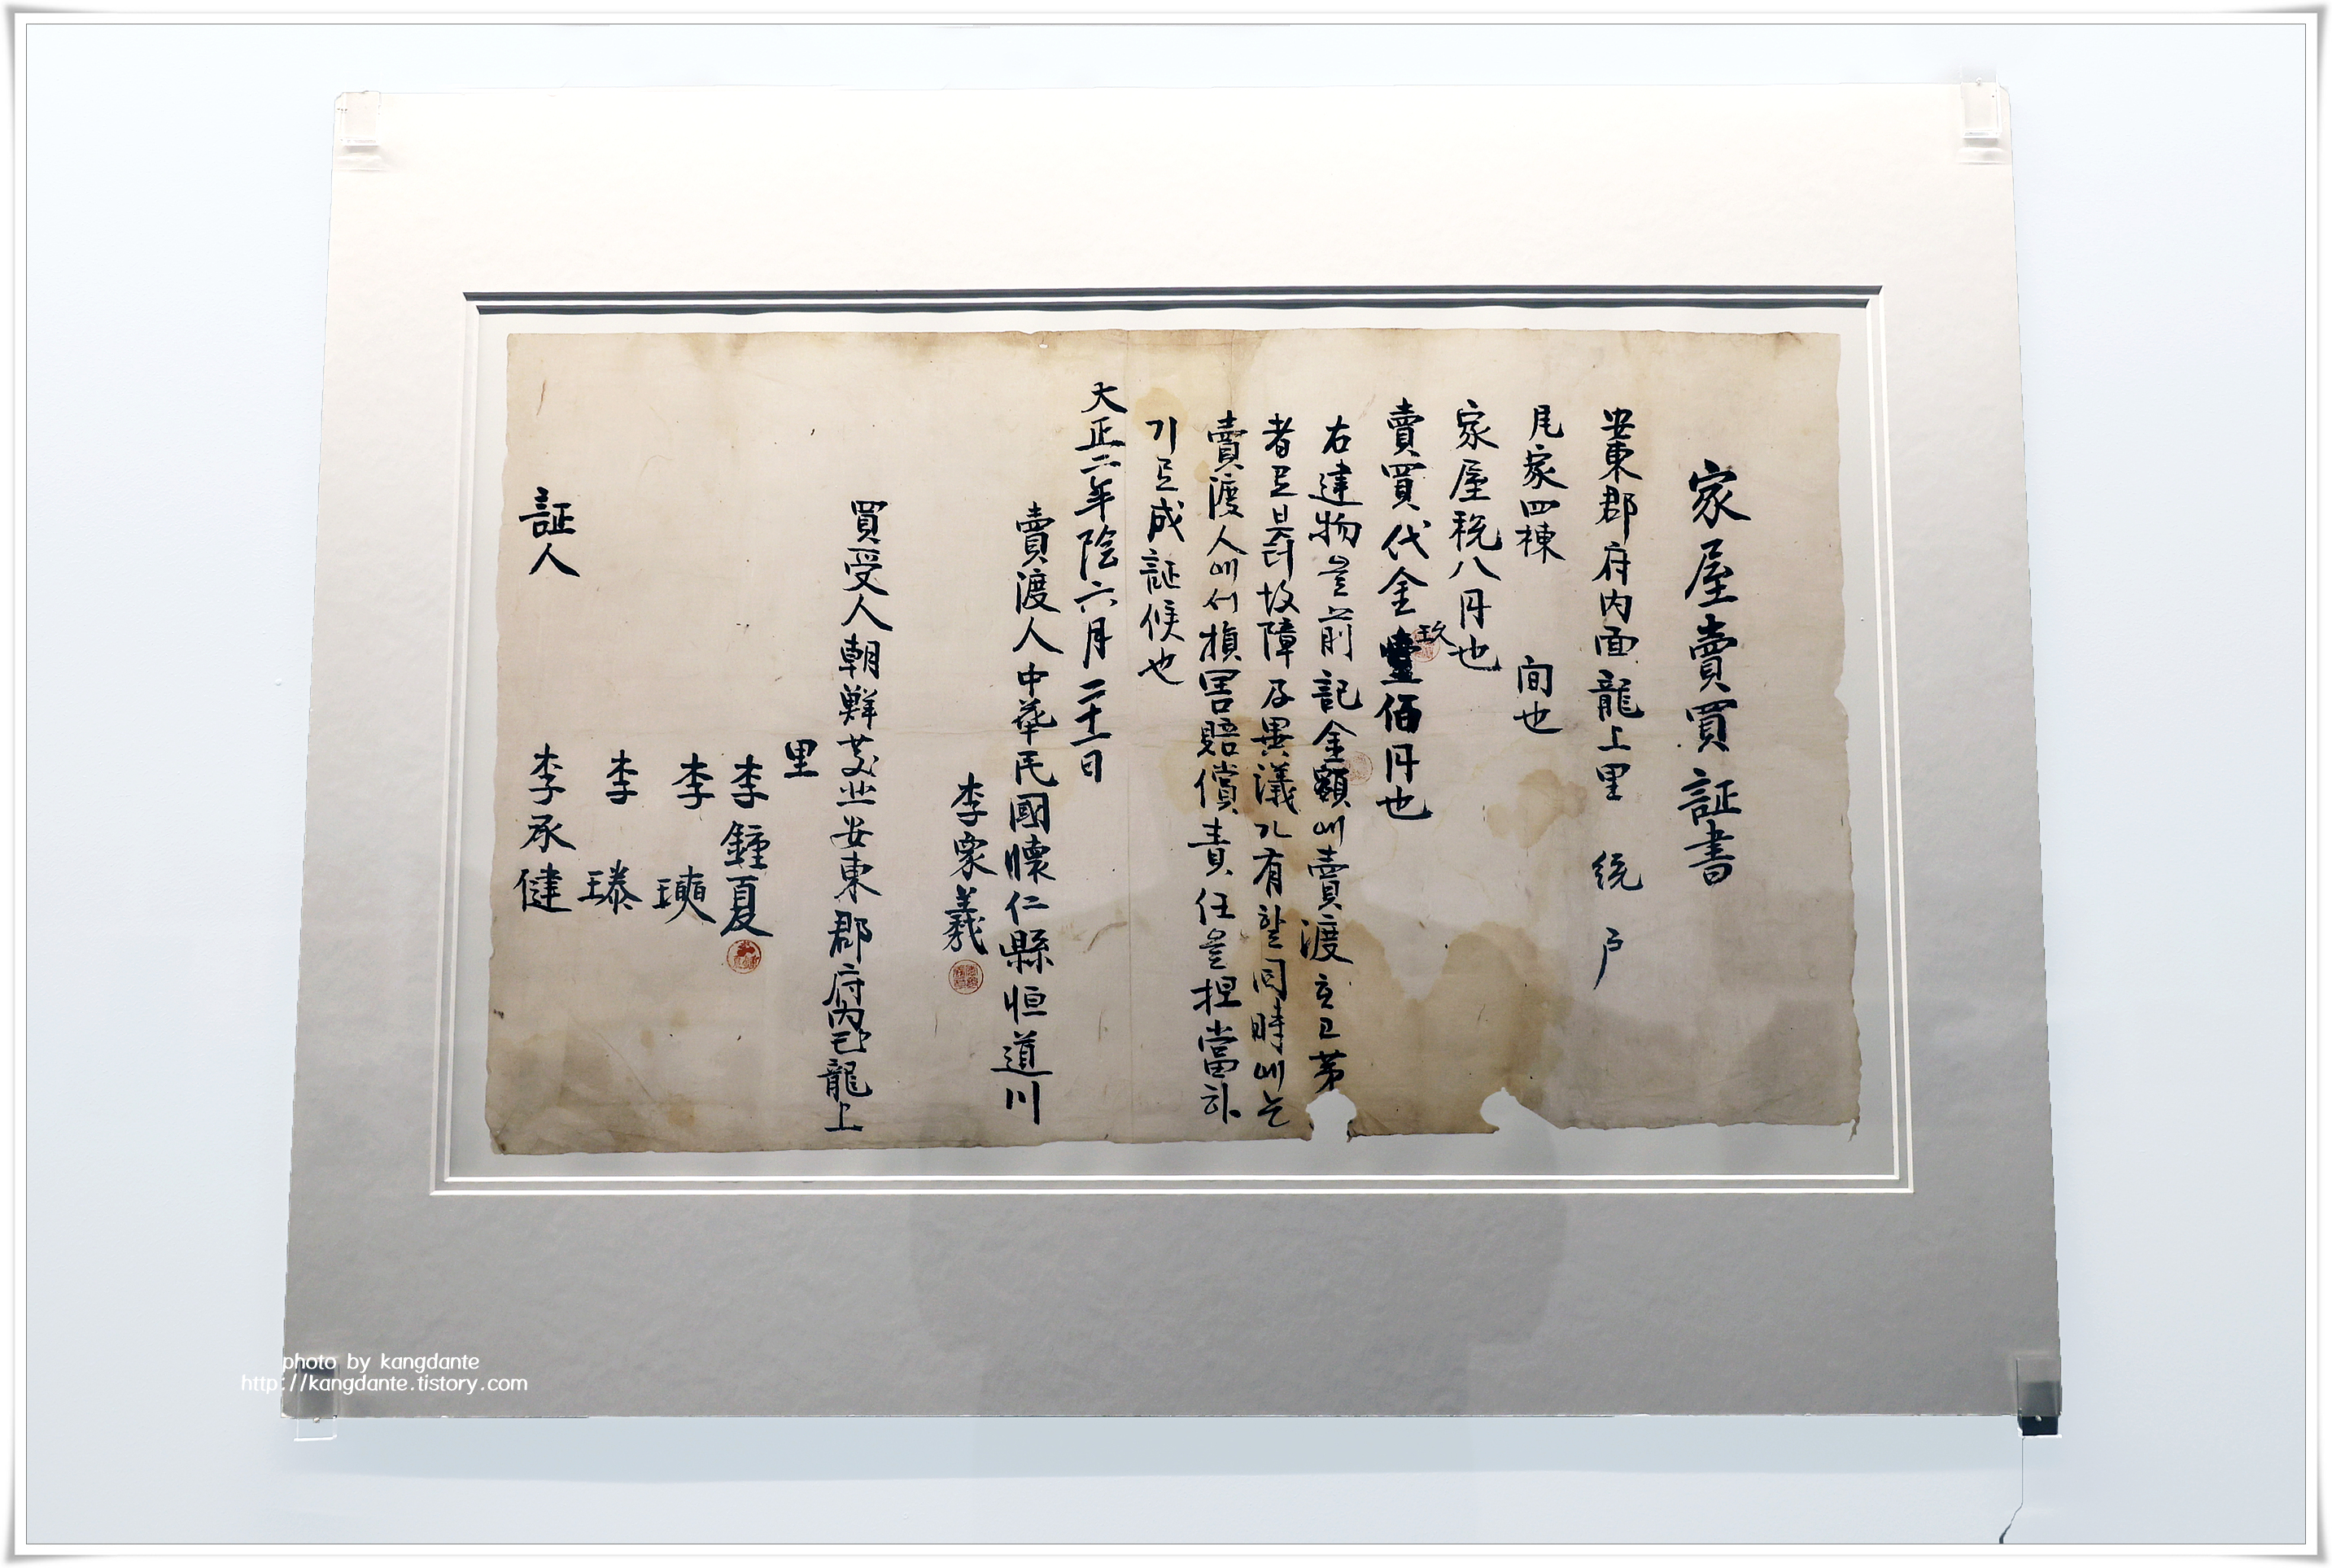 家屋賣買証書
安東郡府内面龍上里 統 戶
瓦家四棟 间也
家屋稅八円也
賣買代金玖佰円也
右建物을前記金額에賣渡하고第
者로브터故障及異議가有할同時에는
賣渡人에서損害賠償責任을担當하
기로成証候也
大正二年陰六月二十一日
賣渡人中華民國懷仁縣恒道川
李象羲
買受人朝鮮慶北安東郡府内面龍上
里
李鍾夏
李
李
証人 李承健
photo by kangdante
http://kangdante.tistory.com